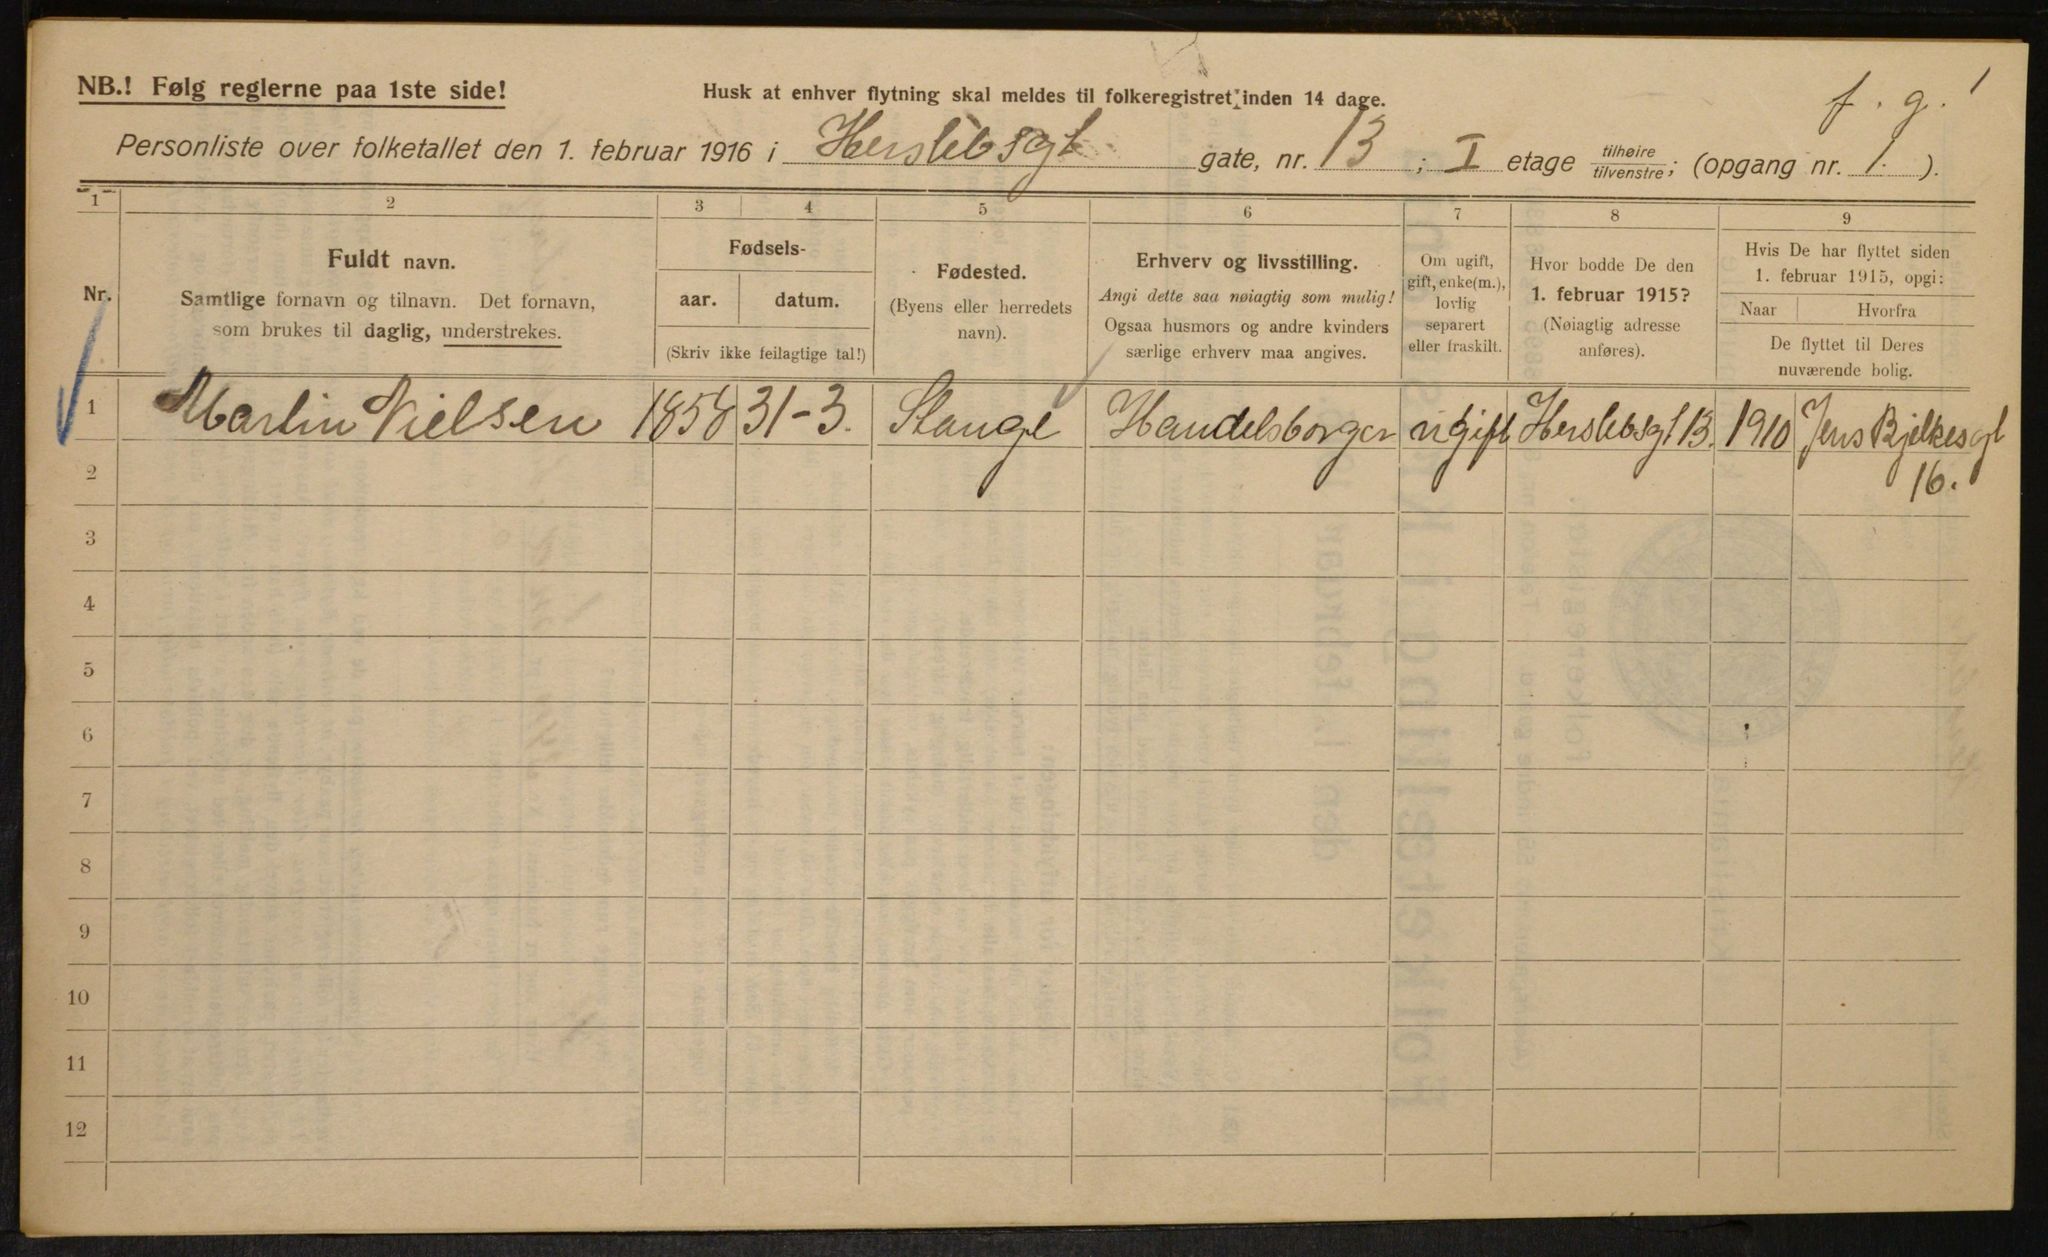 NB.! Følg reglerne paa 1ste side!
Husk at enhver flytning skal meldes til folkeregistret inden 14 dage.
f. g. 1
Personliste over folketallet den 1. februar 1916 i Herslebsgt gate, nr. 13; I etage tilhøire/tilvenstre; (opgang nr. 1. ).
1 2 3 4 5 6 7 8 9
Nr.
Fuldt navn.
Samtlige fornavn og tilnavn. Det fornavn,
som brukes til daglig, understrekes.
Fødsels-
aar. datum.
(Skriv ikke feilagtige tal!)
Fødested.
(Byens eller herredets
navn).
Erhverv og livsstilling.
Angi dette saa nøiagtig som mulig!
Ogsaa husmors og andre kvinders
særlige erhverv maa angives.
Om ugift,
gift, enke(m.),
lovlig
separert
eller fraskilt.
Hvor bodde De den
1. februar 1915?
(Nøiagtig adresse
anføres).
Hvis De har flyttet siden
1. februar 1915, opgi:
Naar Hvorfra
De flyttet til Deres
nuværende bolig.
1 Martin Nielsen 1858 31-3. Stange Handelsborger ugift Herslebsgt 13. 1910 Jens Bjelkesgt
16.
2
3
4
5
6
7
8
9
10
11
12